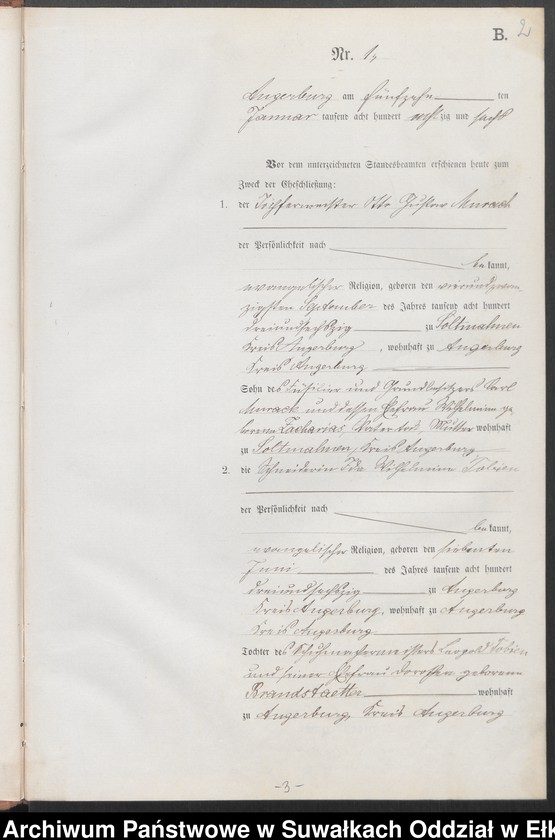 B. 2
Nr. 1.
Angerburg am fünfzehn ten
Januar tausend acht hundert achtzig und sechs
Vor dem unterzeichneten Standesbeamten erschienen heute zum
Zweck der Eheschließung:
1. der Töpfermeister Otto Gustav Murach
der Persönlichkeit nach
bekannt,
evangelischer Religion, geboren den vierundzwan-
zigsten September des Jahres tausend acht hundert
dreiundsechszig zu Soltmahnen
Kreis Angerburg, wohnhaft zu Angerburg
Kreis Angerburg
Sohn des und Grundbesitzers Carl
Murach und dessen Ehefrau Wilhelmine ge-
borene Zacharias, Vater tod, Mutter wohnhaft
zu Soltmahnen, Kreis Angerburg
2. die Schneiderin Ida Wilhelmine Tobien
der Persönlichkeit nach
bekannt,
evangelischer Religion, geboren den siebenten
Juni des Jahres tausend acht hundert
dreiundsechszig zu Angerburg
Kreis Angerburg, wohnhaft zu Angerburg
Kreis Angerburg
Tochter des Schuhmachermeisters Leopold Tobien
und seiner Ehefrau Dorothea geborene
Brandstaetter wohnhaft
zu Angerburg, Kreis Angerburg
-3-
Archiwum Państwowe w Suwałkach Oddział w Ełk